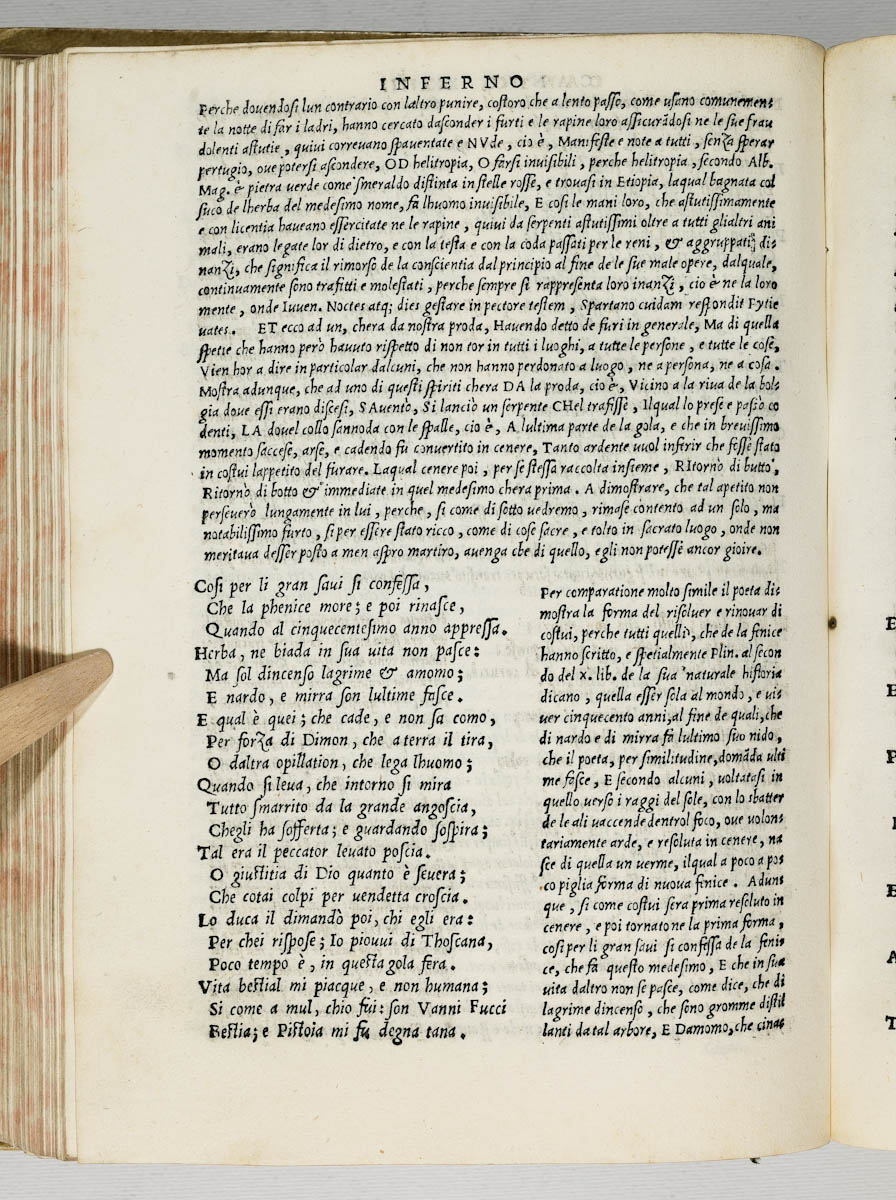 INFERNO
Perche dovendosi lun contrario con laltro punire, costoro che a lento passo, come usano comunemen‑
te la notte di far i ladri, hanno cercato dasconder i furti e le rapine loro assicurãdosi ne le sue frau
dolenti astutie, quivi correvano spaventate e NVde, cio è, Manifeste e note a tutti, senza sperar
pertugio, ove potersi ascondere, OD helitropia, O farsi invisibili, perche helitropia, secondo Alb.
Mag. è pietra verde come smeraldo distinta in stelle rosse, e trovasi in Etiopia, laqual bagnata col
suco de lherba del medesimo nome, fa lhuomo invisibile, E cosi le mani loro, che astutissimamente
e con licentia haveano essercitate ne le rapine, quivi da serpenti astutissimi oltre a tutti glialtri ani
mali, erano legate lor di dietro, e con la testa e con la coda passati per le reni, & aggruppati di‑
nanzi, che significa il rimorso de la conscientia dal principio al fine de le sue male opere, dalquale,
continuamente sono trafitti e molestati, perche sempre si rappresenta loro inanzi, cio è ne la loro
mente, onde Iuven. Noctes atq; dies gestare in pectore testem, Spartano cuidam respondit Pytie
vates. ET ecco ad un, chera da nostra proda, Havendo detto de furi in generale, Ma di quella
spetie che hanno però havuto rispetto di non tor in tutti i luoghi, a tutte le persone, e tutte le cose,
Vien hor a dire in particolar dalcuni, che non hanno perdonato a luogo, ne a persona, ne a cosa.
Mostra adunque, che ad uno di questi spiriti chera DA la proda, cio è, Vicino a la riva de la bol‑
gia dove essi erano discesi, SAventò, Si lanciò un serpente CHel trafisse, Ilqual lo prese e passò co
denti, LA dovel collo sannoda con le spalle, cio è, A lultima parte de la gola, e che in brevissimo
momento saccese, arse, e cadendo fu convertito in cenere, Tanto ardente vuol inferir che fosse stato
in costui lappetito del furare. Laqual cenere poi, per se stessa raccolta insieme, RItornò di butto,
Ritornò di botto & immediate in quel medesimo chera prima. A dimostrare, che tal apetito non
perseverò lungamente in lui, perche, si come di sotto vedremo, rimase contento ad un solo, ma
notabilissimo furto, si per essere stato ricco, come di cose sacre, e tolto in sacrato luogo, onde non
meritava desser posto a men aspro martiro, avenga che di quello, egli non potesse ancor gioire.
Cosi per li gran savi si confessa,
Che la phenice more; e poi rinasce,
Quando al cinquecentesimo anno appressa.
Herba, ne biada in sua vita non pasce:
Ma sol dincenso lagrime & amomo;
E nardo, e mirra son lultime fasce.
E qual è quei; che cade, e non sa como,
Per forza di Dimon, che a terra il tira,
O daltra opillation, che lega lhuomo;
Quando si leva, che intorno si mira
Tutto smarrito da la grande angoscia,
Chegli ha sofferta; e guardando sospira;
Tal era il peccator levato poscia.
O giustitia di Dio quanto è severa;
Che cotai colpi per vendetta croscia.
Lo duca il dimandò poi, chi egli era:
Per chei rispose; Io piovvi di Thoscana,
Poco tempo è, in questa gola fera.
Vita bestial mi piacque, e non humana;
Si come a mul, chio fui: son Vanni Fucci
Bestia; e Pistoia mi fu degna tana.
Per comparatione molto simile il poeta di‑
mostra la forma del risolver e rinovar di
costui, perche tutti quelli, che de la fenice
hanno scritto, e spetialmente Plin. al secon
do del x. lib. de la sua naturale historia
dicano, quella esser sola al mondo, e vi‑
ver cinquecento anni, al fine de quali, che
di nardo e di mirra fa lultimo suo nido,
che il poeta, per similitudine, domãda ulti
me fasce, E secondo alcuni, voltatasi in
quello verso i raggi del sole, con lo sbatter
de le ali vaccende dentrol foco, ove volon‑
tariamente arde, e resoluta in cenere, na
sce di quella un verme, ilqual a poco a po‑
co piglia forma di nuova fenice. Adun‑
que, si come costui sera prima resoluto in
cenere, e poi tornato ne la prima forma,
cosi per li gran savi si confessa de la feni‑
ce, che fa questo medesimo, E che in sua
vita daltro non se pasce, come dice, che di
lagrime dincenso, che sono gromme distil
lanti da tal arbore, E Damomo, che cina‑